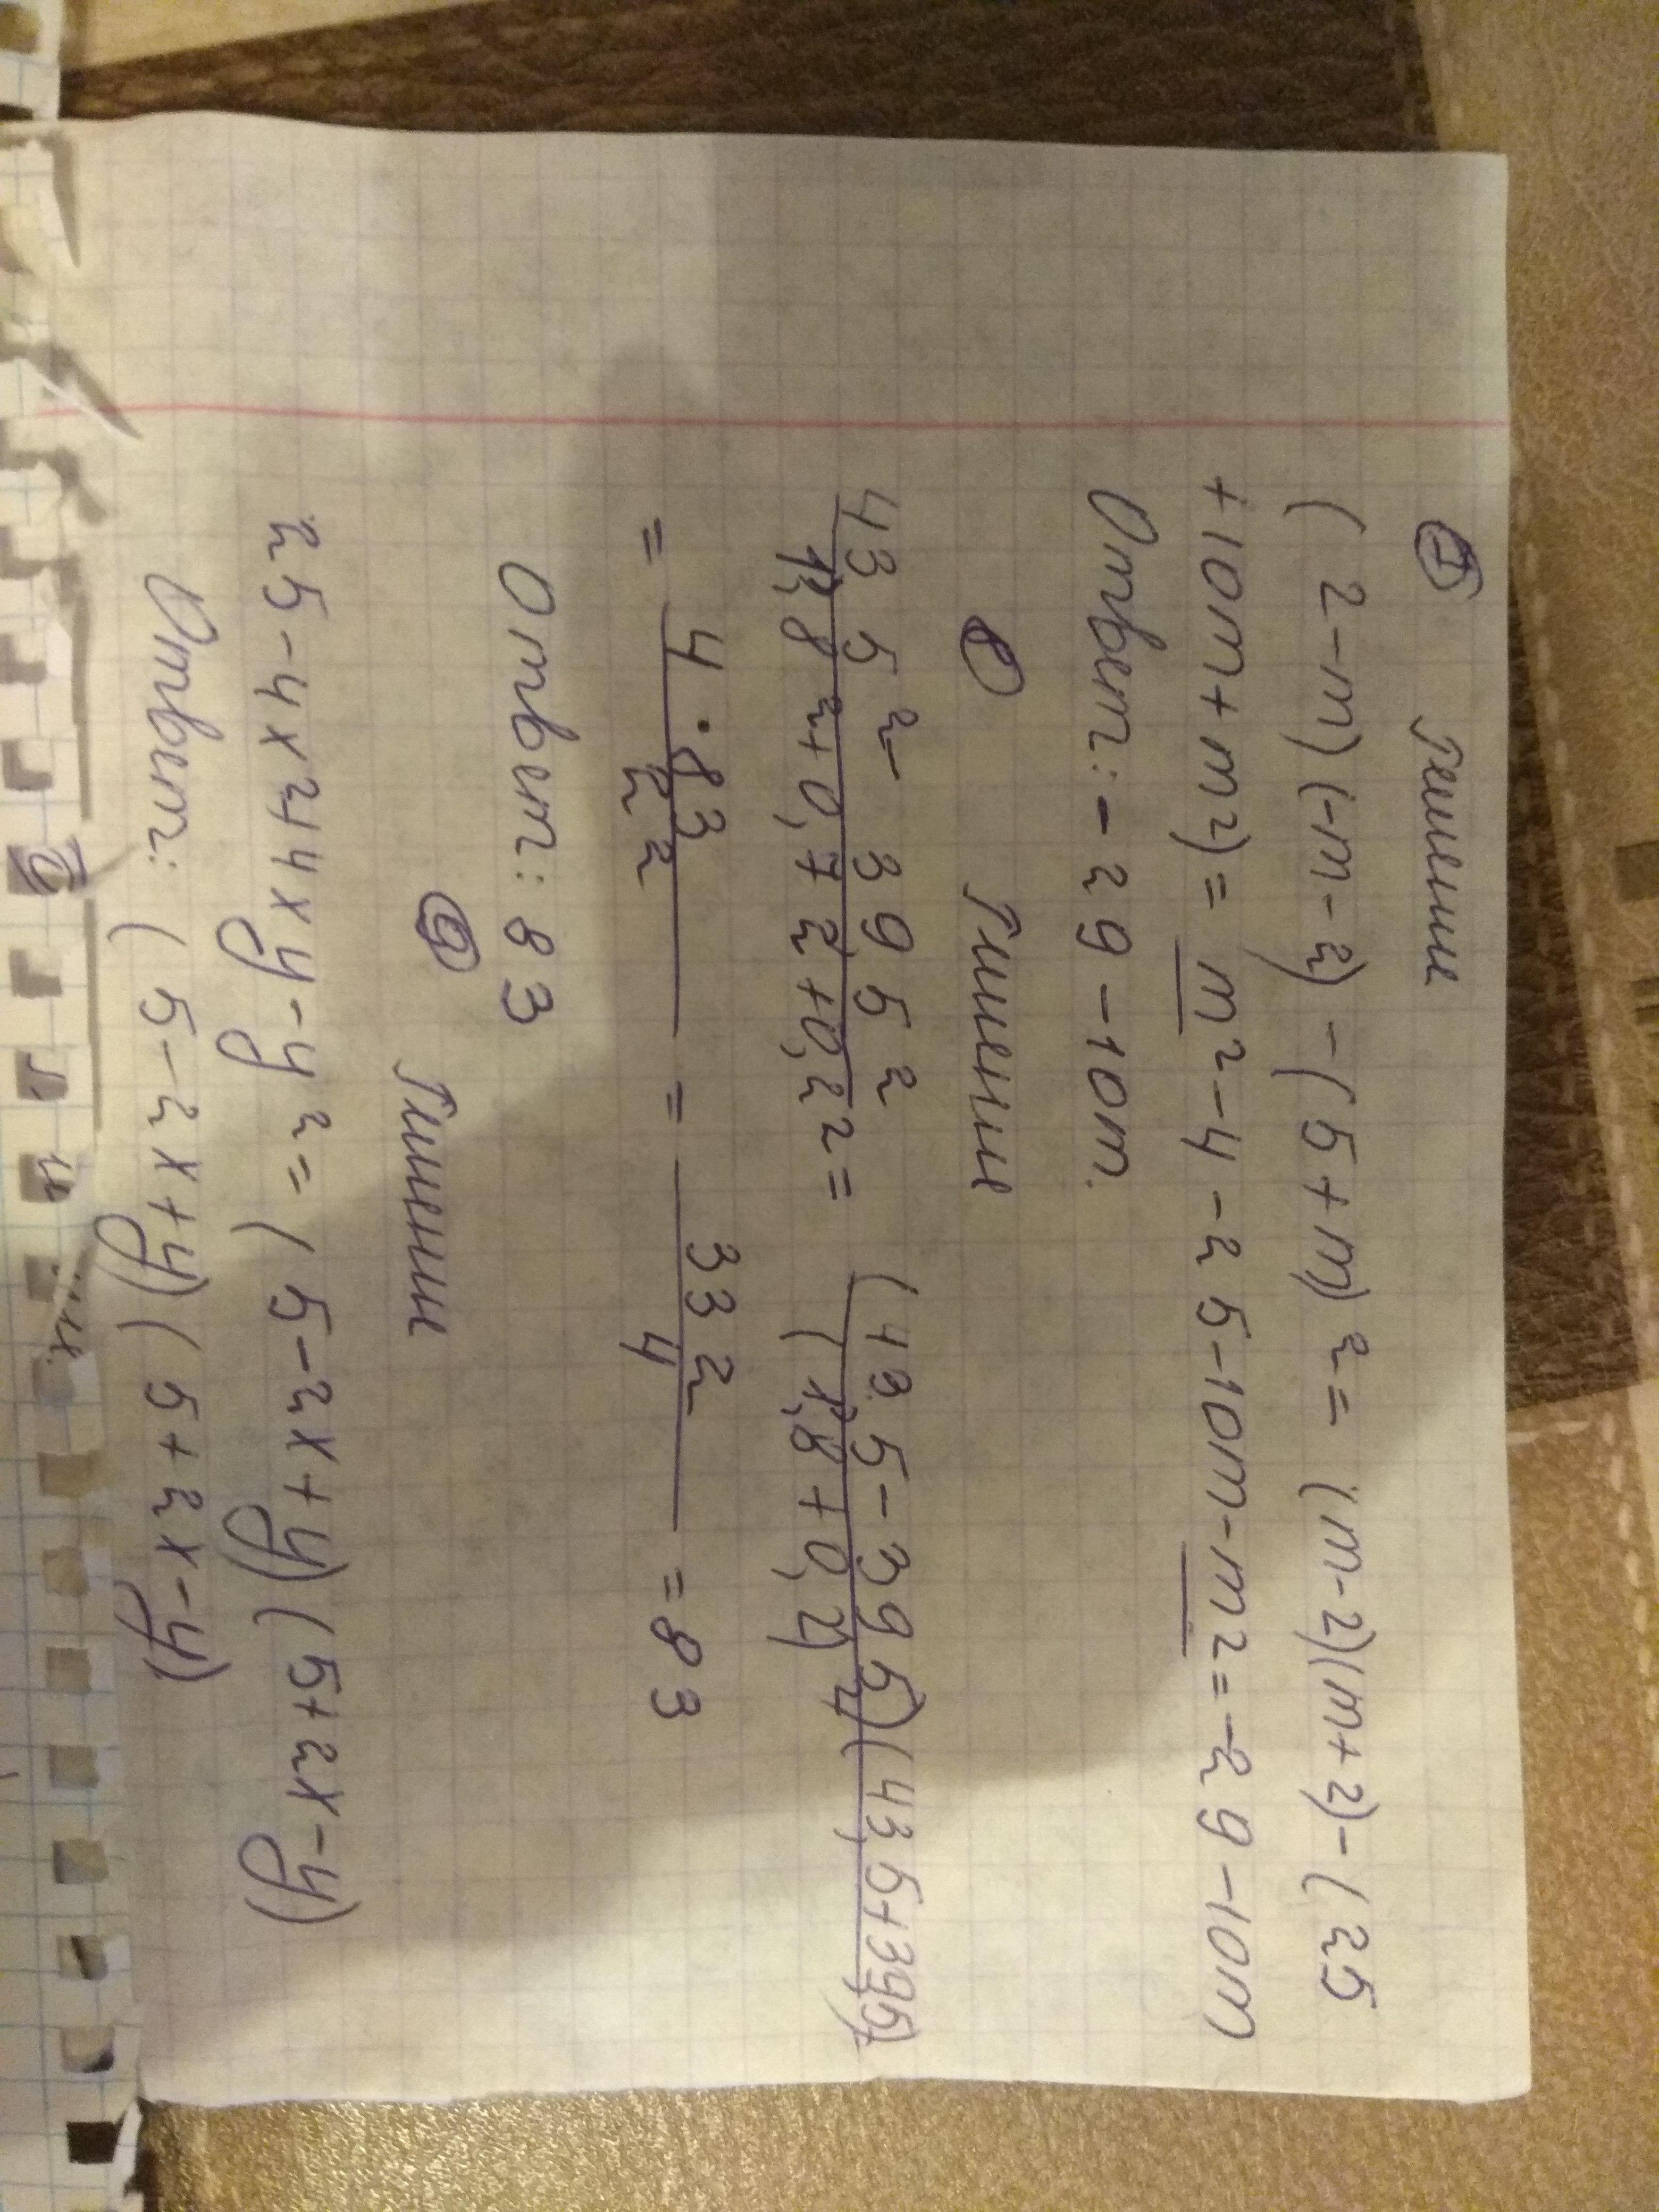 ⑦ Решение
(2-m)(-m-2)-(5+m)²=(m-2)(m+2)-(25
+10m+m²)=m²-4-25-10m-m²=-29-10m
Ответ:-29-10m.
⑧ Решение
43,5²-39,5²/1,8²+0,72+0,2²=(43,5-39,5)(43,5+39,5)/(1,8+0,2)²
=4·83/2²=332/4=83
Ответ:83
⑨ Решение
25-4x²+4xy-y²=(5-2x+y)(5+2x-y)
Ответ:(5-2x+y)(5+2x-y)